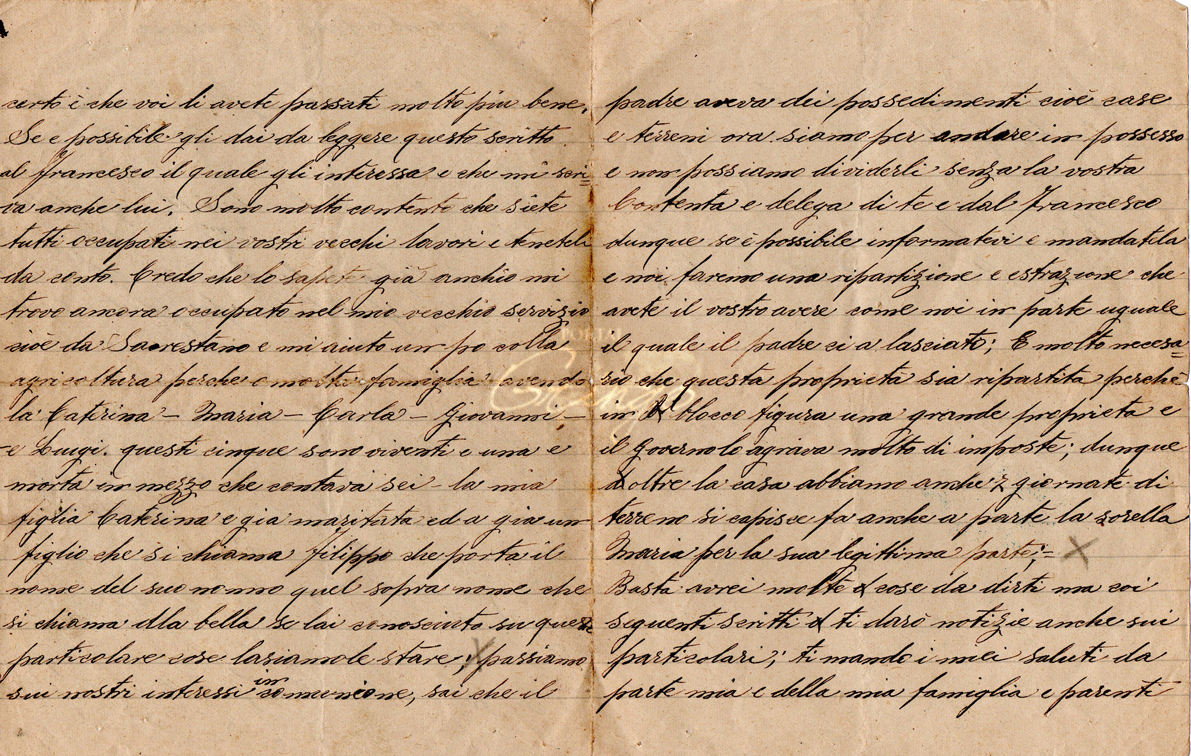 certo è che voi li aveti passati molto piu bene,
Se e possibile gli dai da leggere questo scritto
al Francesco il quale gli interessa e che mi scri=
va anche lui. Sono molto contento che siete
tutti occupati nei vostri vecchi lavori e teneteli
da conto. Credo che lo sapete già anchio mi
trovo ancora occupato nel mio vecchio servizio
cioè da Sacrestano e mi aiuto un po colla
agricoltura perche o molta famiglia avendo
la Caterina – Maria – Carla – Giovanni –
e Luigi. questi cinque sono viventi e una e
morta in mezzo che contava sei – la mia
figlia Caterina e gia maritata ed a gia un
figlio che si chiama Filippo che porta il
nome del suo nonno quel sopra nome che
si chiama dlla bella se lai conosciuto su queste
particolare cose lasiamole stare; passiamo
sui nostri interessi in comunione, sai che il
padre aveva dei possedimenti cioè case
e terreni ora siamo per andare in possesso
e non possiamo dividerli senza la vostra
contenta e delega di te e dal Francesco
dunque se è possibile informatevi e mandatela
e noi faremo una ripartizione e estrazione che
avete il vostro avere come noi in parte uguale
il quale il padre ci a lasciato; E molto necesa=
rio che questa proprietà sia ripartita perchè
in blocco figura una grande proprieta e
il governo lo agrava molto di imposte; dunque
oltre la casa abbiamo anche 7 giornate di
terreno si capisce fa anche a parte la sorella
Maria per la sua legittima parte;=
Basta avrei molte cose da dirti ma coi
seguenti scritti ti darò notizie anche sui
particolari; ti mando i miei saluti da
parte mia e della mia famiglia e parenti